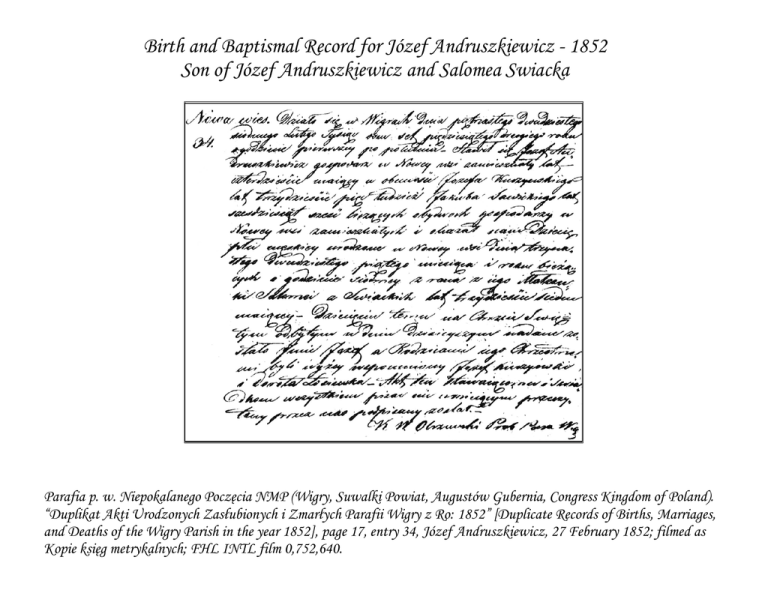 Birth and Baptismal Record for Józef Andruszkiewicz - 1852
Son of Józef Andruszkiewicz and Salomea Swiacka
Nowa wies. Działo się w Wigrach dnia piętnastego Dwudziestego
34. siódmego Lutego Tysiąc osm set pięćdziesiątego drugiego roku
o godzinie pierwszy po południu - Stawił się Józef An
druszkiewicz gospodarz w Nowey wsi zamieszkały lat
czterdzieści maiący w obecności Józefa
lat trzydzieści pięć tudzież Jakuba Sawickiego lat
sześćdziesiąt sześć liczących obydwóch gospodarzy w
Nowey wsi zamieszkałych i okazał nam Dziecię
płci męskiey urodzone w Nowey wsi dnia
Dwudziestego piątego miesiąca i roku bieżą
cych o godzinie siódmey z rana z iego Małżon
ki Salomei z Swiackich lat trzydzieści siedm
maiącey - Dziecięciu temu na Chrzcie Swię
tym odbytym w dniu dzisieyszym nadane zo
stało Imie Józef a Rodzicami iego Chrzestne
mi byli wyżey wspomniony Józef
i Dorota - Akt ten Stawaiącemu i Swia
dkom wszystkim pisać nie umieiącym przeczy
tany przez nas podpisany został -
Parafia p. w. Niepokalanego Poczęcia NMP (Wigry, Suwalki Powiat, Augustów Gubernia, Congress Kingdom of Poland).
“Duplikat Akti Urodzonych Zasłubionych i Zmarłych Parafii Wigry z Ro: 1852” [Duplicate Records of Births, Marriages,
and Deaths of the Wigry Parish in the year 1852], page 17, entry 34, Józef Andruszkiewicz, 27 February 1852; filmed as
Kopie ksiąg metrykalnych; FHL INTL film 0,752,640.